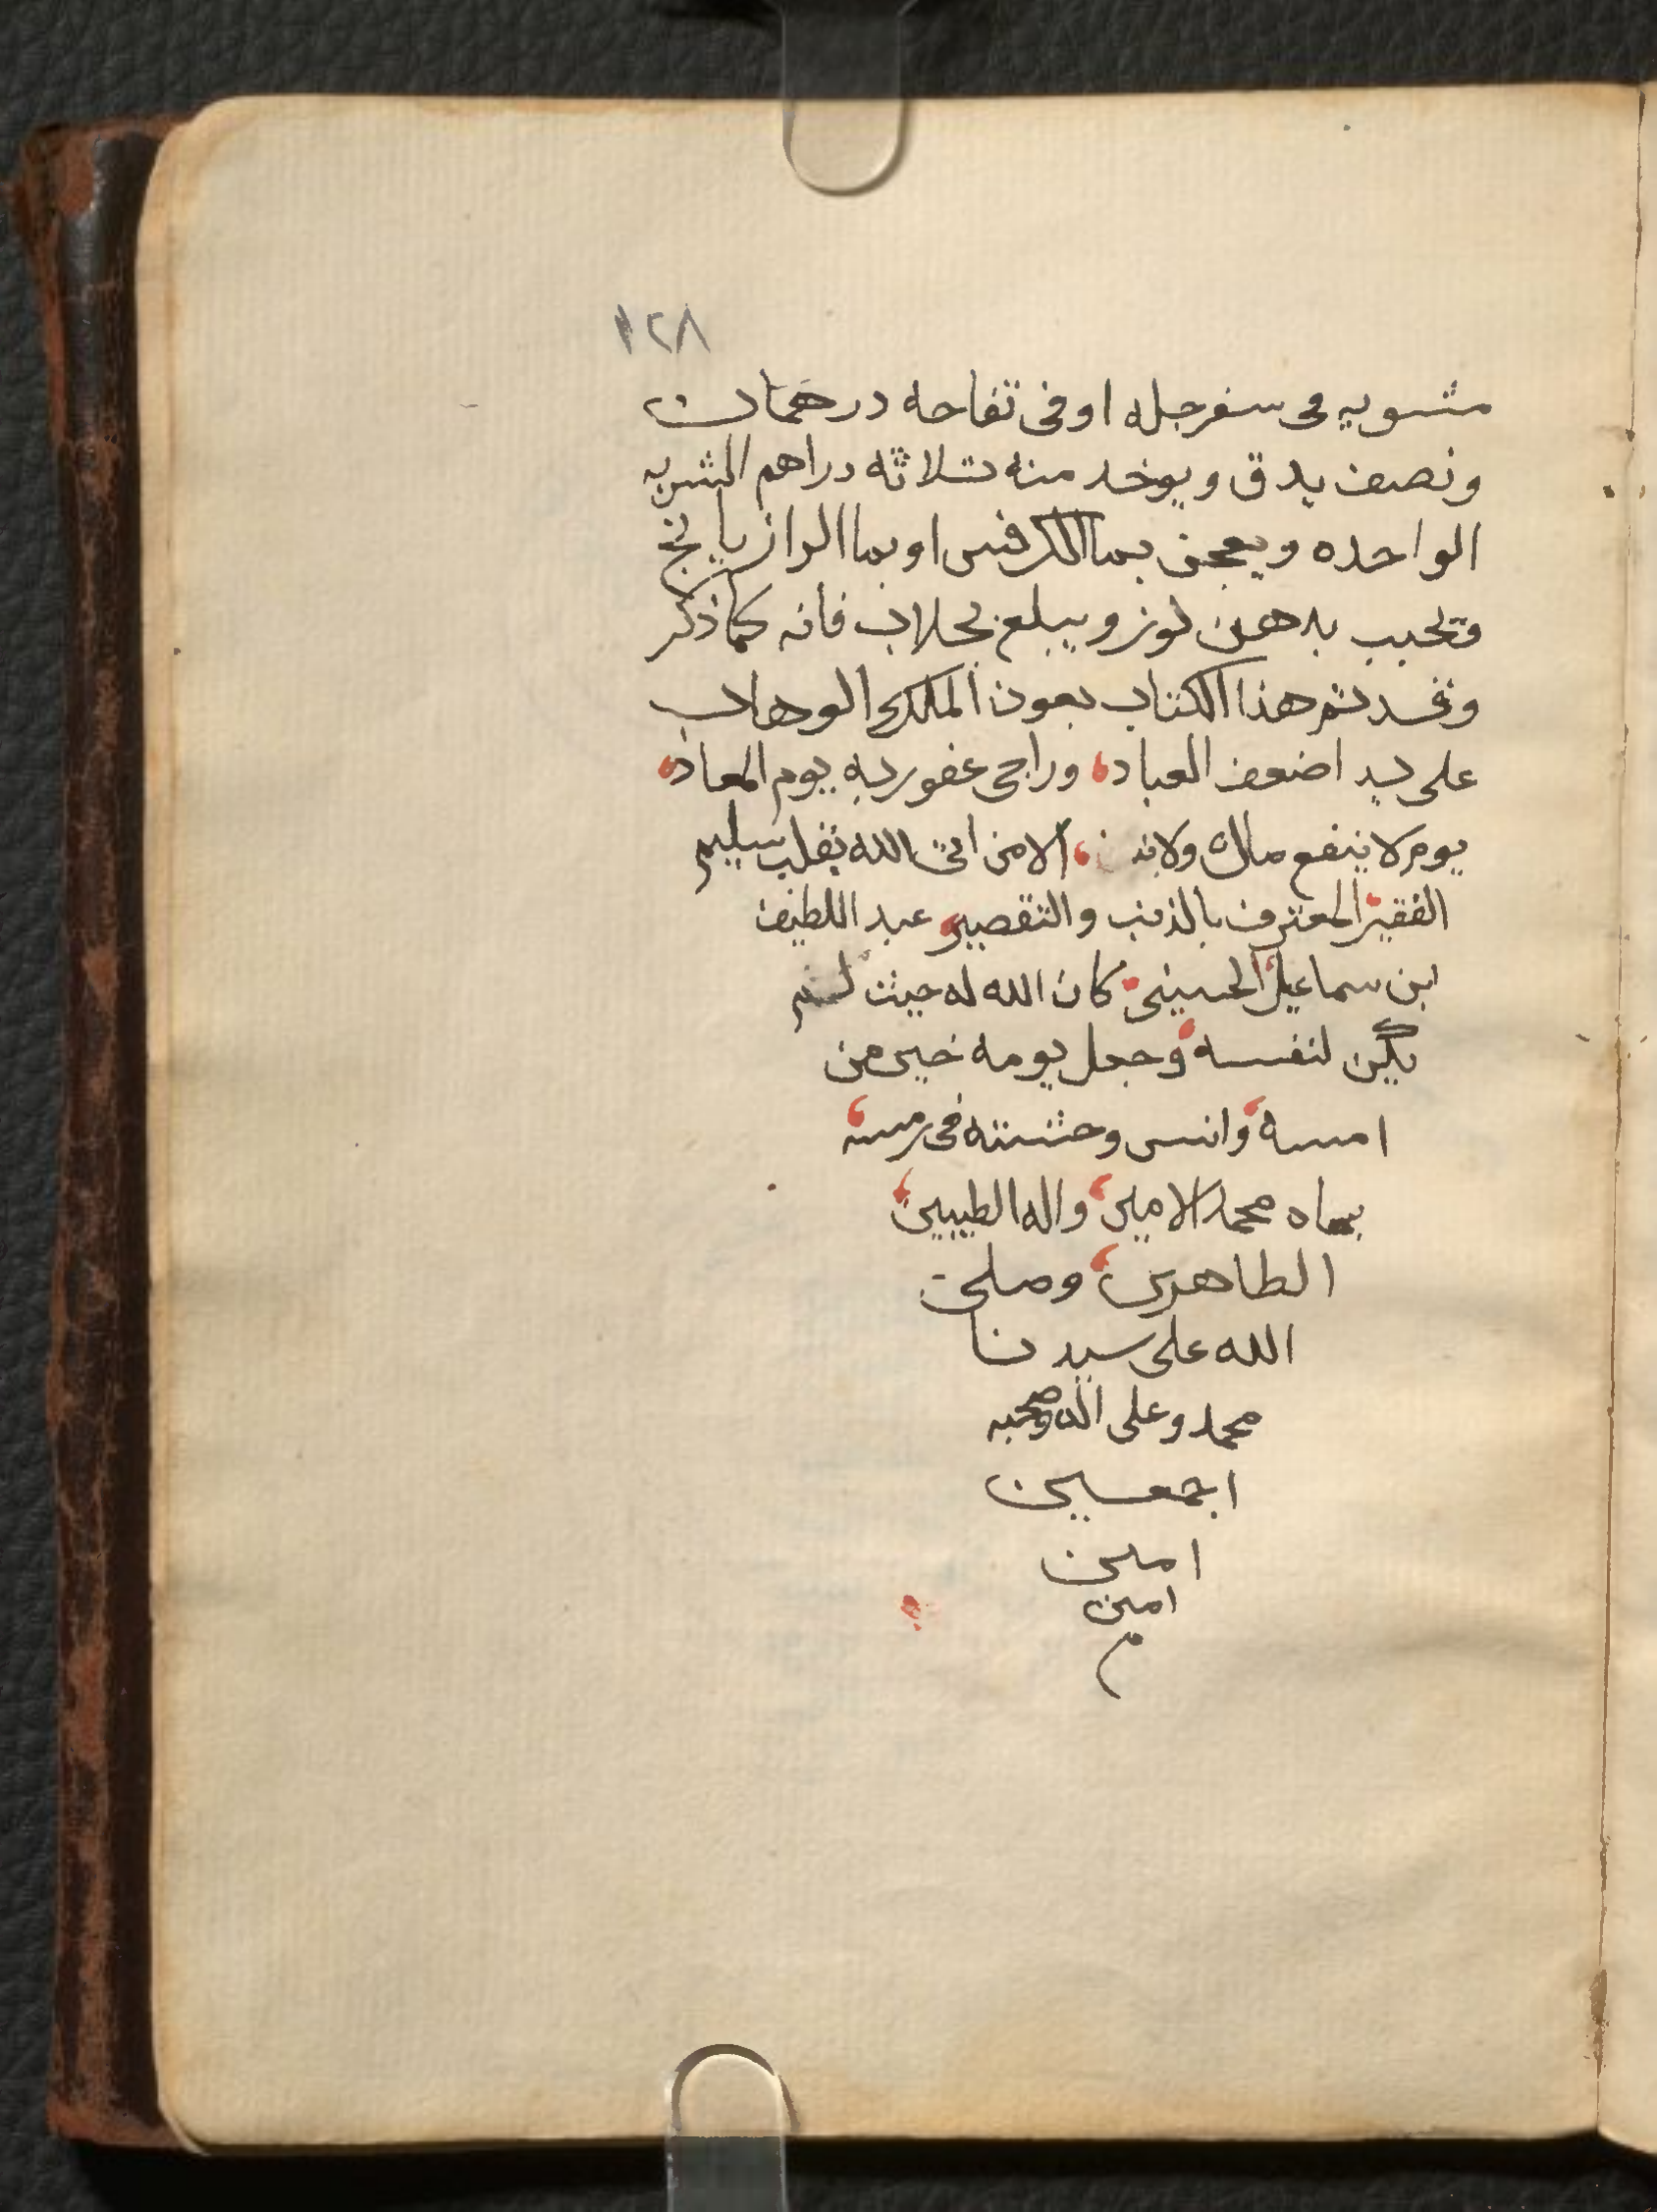 ١٢٨
مشويه فى سفرجله او فى تفاحه درهمان
ونصف يدق ويوخد منه ثلاثه دراهم الشربه
الواحده ويعجن بما الكرفس او بما الرازيانج
وتحبب بدهن لوز ويبلع بجلاب فانه كما ذكر
وقد تم هذا الكتاب بعون الملك الوهاب
على يد اضعف العباد، وراجى عفو ربه يوم المعاد،
يوم لا ينفع مال ولا ، الا من اتى الله بقلب سليم
الفقير المعترف بالذنب والتقصير عبد اللطيف
ابن سماعيل الحسينى كان الله له حيث لم
يكن لنفسه وجعل يومه خير من
امسه، وانس وحشته فى رمسه،
بجاه محمد الامين، واله الطيبين،
الطاهرين، وصلى
الله على سيدنا
محمد وعلى اله وصحبه
اجمعين
امين
امين
م